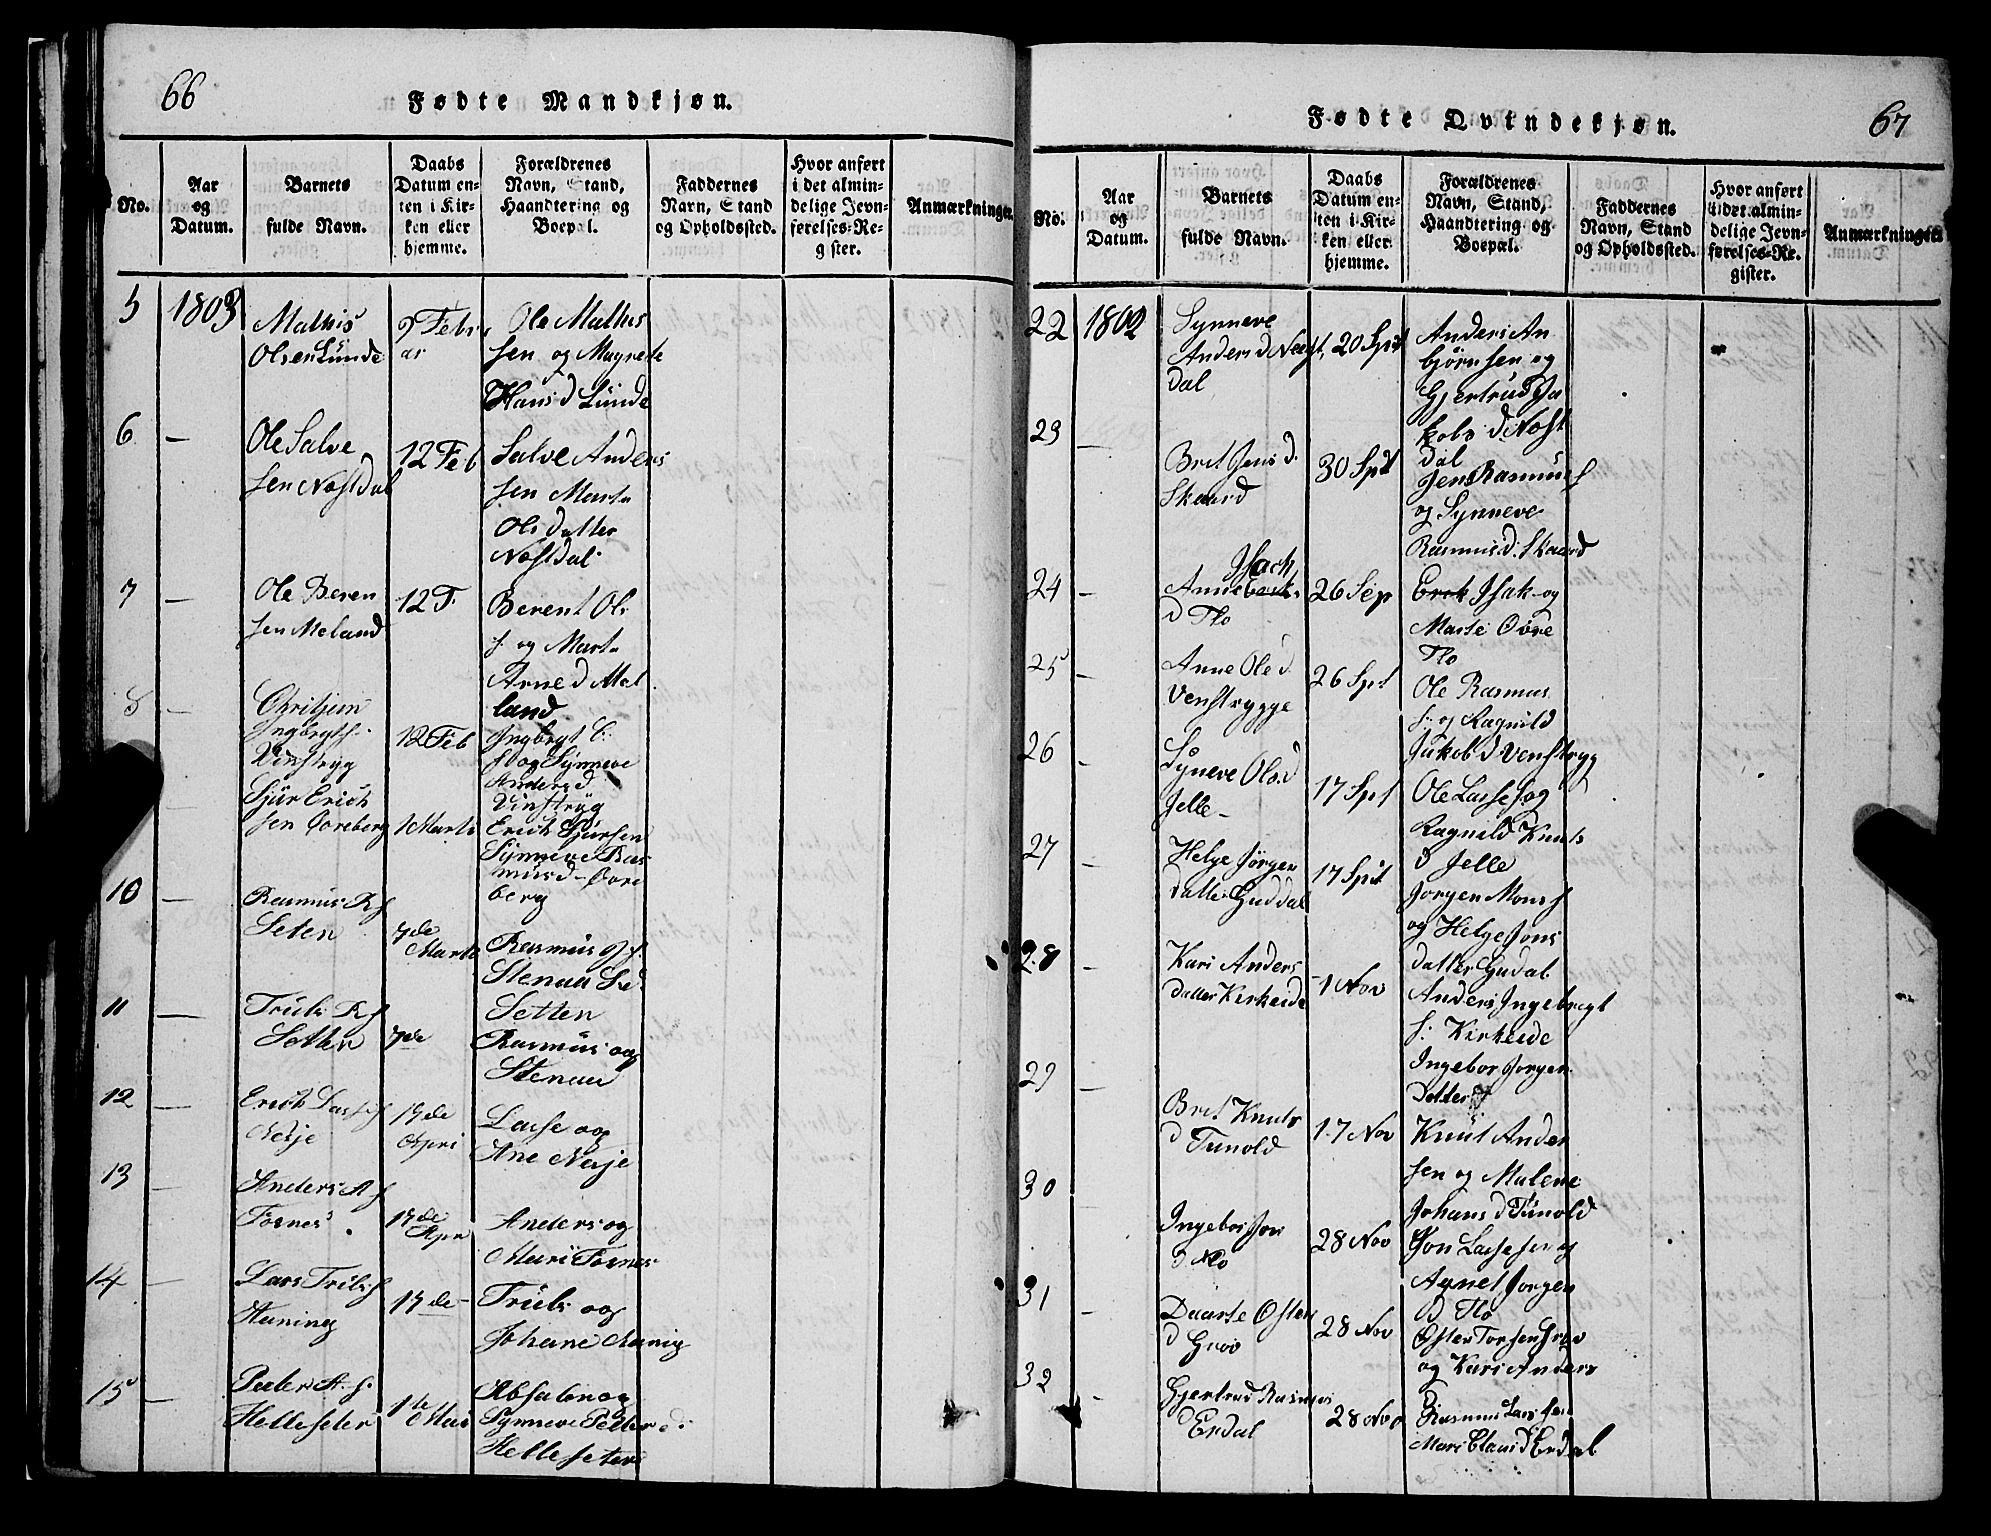 66
Fødte Mandkjøn.
No.
Aar
og
Datum.
Barnets
fulde Navn.
Daabs
Datum en-
ten i Kir-
ken eller
hjemme.
Forældrenes
Navn, Stand,
Haandtering og
Boepæl.
Faddernes
Navn, Stand
og Opholdssted.
Hvor anført
i det almin-
delige Jevn-
førelses-Re-
gister.
Anmærkninger.
5
1803
Mathis
Olsen Lunde
9 Febr
ar
Ole Mathis
sen og Magrete
Hans d Lunde
6
—
Ole Salve
sen Nøstdal
12 Feb
Salve Anders
sen Marta
Olsdatter
Nøstdal
7
—
Ole Beren
sen Meland
12 F.
Berent Ols
s. og Marta
Arne d Mel
land
8
—
Ingbregt s.
Vinstryg
12 Feb
Ingbregt
og Synneve
Anders d
Vinstryg
Sjur Erich
sen Goreberg
1 Marti
Erich Sjursen
Synneve Ras
mus d
berg
10
—
Rasmus R s
Seten
7de
Marti
Rasmus
Stenau
Setten
11
—
Truls R s
Setten
7de
Rasmus og
Stenau
12
—
Erich Lasse s
Nesje
19de
Apri
Lasse og
Ane Nesje
13
—
Anders A s
Fosnes
19de
Apr
Anders og
Mari Fosnes
14
—
Lars Truls s
Aaning
19de
Truls og
Johane
15
—
Peder A. s.
Helleseter
1de Mai
Absalon og
Synneve Peder d.
Helleseter
67
Fødte Qvindekjøn.
No.
Aar
og
Datum.
Barnets
fulde Navn.
Daabs
Datum en-
ten i Kir-
ken eller
hjemme.
Forældrenes
Navn, Stand,
Haandtering og
Boepæl.
Faddernes
Navn, Stand
og Opholdssted.
Hvor anført
i det almin-
delige Jevn-
førelses-Re-
gister.
Anmærkninger.
22
1802
Synneve
Anders d Nøst
dal
20 Spt
Anders An
bjørnsen og
Gjertrud Ja
kobs d. Nøst
dal
23
—
Bret Jens d.
Skaard
30 Spt
Jens Rasmus s
og Synneve
Rasmus d. Skaard
24
—
Isach
Anne
d Flo
26 Sep
Erik Isak og
Marte Øvre
Flo
25
—
Anne Ole d.
Venstrygge
26 Spt
Ole Rasmus
s. og Ragnild
Jakob d Venstryg
26
—
Syneve Ols d
Jelle
17 Spt
Ole Lasse s og
Ragnild Knuts
d Jelle
27
—
Helge Jørgen
datter Guddal
17 Spt
Jørgen Mons s
og Helge Jons
datter Gudal
28
—
Kari Anders
datter Kirkeide
1 Nov
Anders Ingebregt
s. Kirkeide
Ingebor Jorgen
Datter
29
—
Bret Knuts
d Tunold
17 Nov
Knut Ander
sen og Malene
Johans d Tunold
30
Ingebor Jon
d Flo
28 Nov
Jon Lassesen og
Agnet Jorgen
d Flo
31
—
Daarte Osten
d Grov
28 Nov
Osten Torsen Grov
og Kari Anders
32
—
Gjertrud Rasmus
d Erdal
28 Nov
Rasmus Lars sen
Mari Claus d Erdal